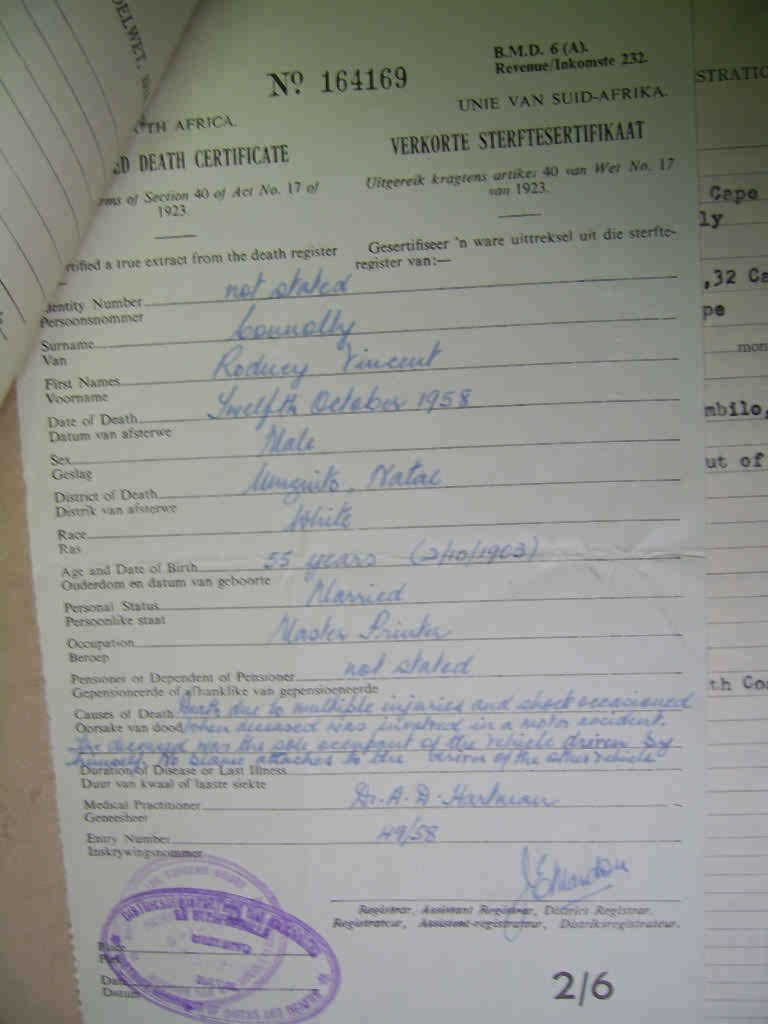 DELWET.
B.M.D. 6 (A).
Revenue/Inkomste 232.
No. 164169
TH AFRICA.
UNIE VAN SUID-AFRIKA.
ED DEATH CERTIFICATE
VERKORTE STERFTESERTIFIKAAT
rms of Section 40 of Act No. 17 of
1923.
Uitgereik kragtens artikel 40 van Wet No. 17
van 1923.
rtified a true extract from the death register
Gesertifiseer 'n ware uittreksel uit die sterfte-
register van:—
dentity Number not stated
Persoonsnommer
Surname Connolly
Van
First Names Rodney Vincent
Voorname
Date of Death Twelfth October 1958
Datum van afsterwe
Sex Male
Geslag
District of Death Umzinto, Natal
Distrik van afsterwe
Race White
Ras
Age and Date of Birth 55 years (2/10/1903)
Ouderdom en datum van geboorte
Personal Status Married
Persoonlike staat
Occupation Master Printer
Beroep
Pensioner or Dependent of Pensioner not stated
Gepensioneerde of afhanklike van gepensioeneerde
Causes of Death Death due to multiple injuries and shock occasioned
Oorsake van dood when deceased was involved in a motor accident.
The deceased was the sole occupant of the vehicle driven by
himself. No blame attaches to the driver of the other vehicle
Duration of Disease or Last Illness
Duur van kwaal of laaste siekte
Medical Practitioner Dr. A. D. Hartman
Geneesheer
Entry Number 49/58
Inskrywingsnommer
Registrar, Assistant Registrar, District Registrar.
Registrateur, Assistent-registrateur, Distriksregistrateur.
Date
Datum
OF BIRTHS AND DEATHS
2/6
STRATIO
Cape
ly
,32 Ca
pe
mon
mbilo,
ut of
th Coa